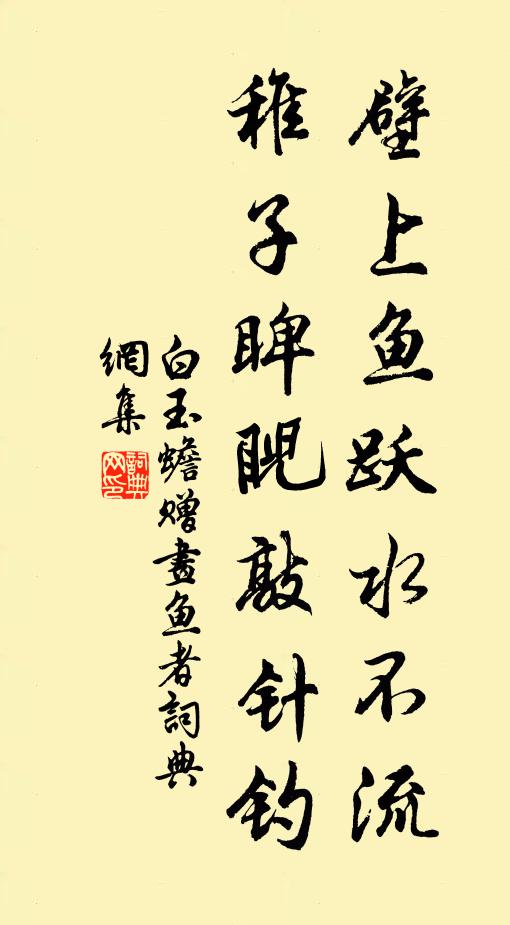 壁上鱼跃水不流
稚子睥睨敲针钓
白玉蟾赠畫鱼者詞典
網集
詞典網印